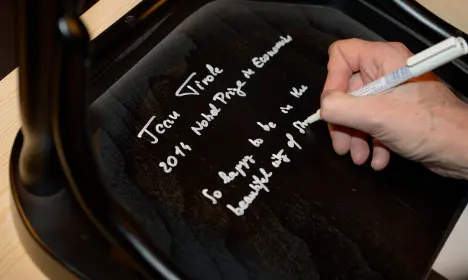 Jean Tirole
2014 Nobel Prize in Economics
So happy to be in the
beautiful city of